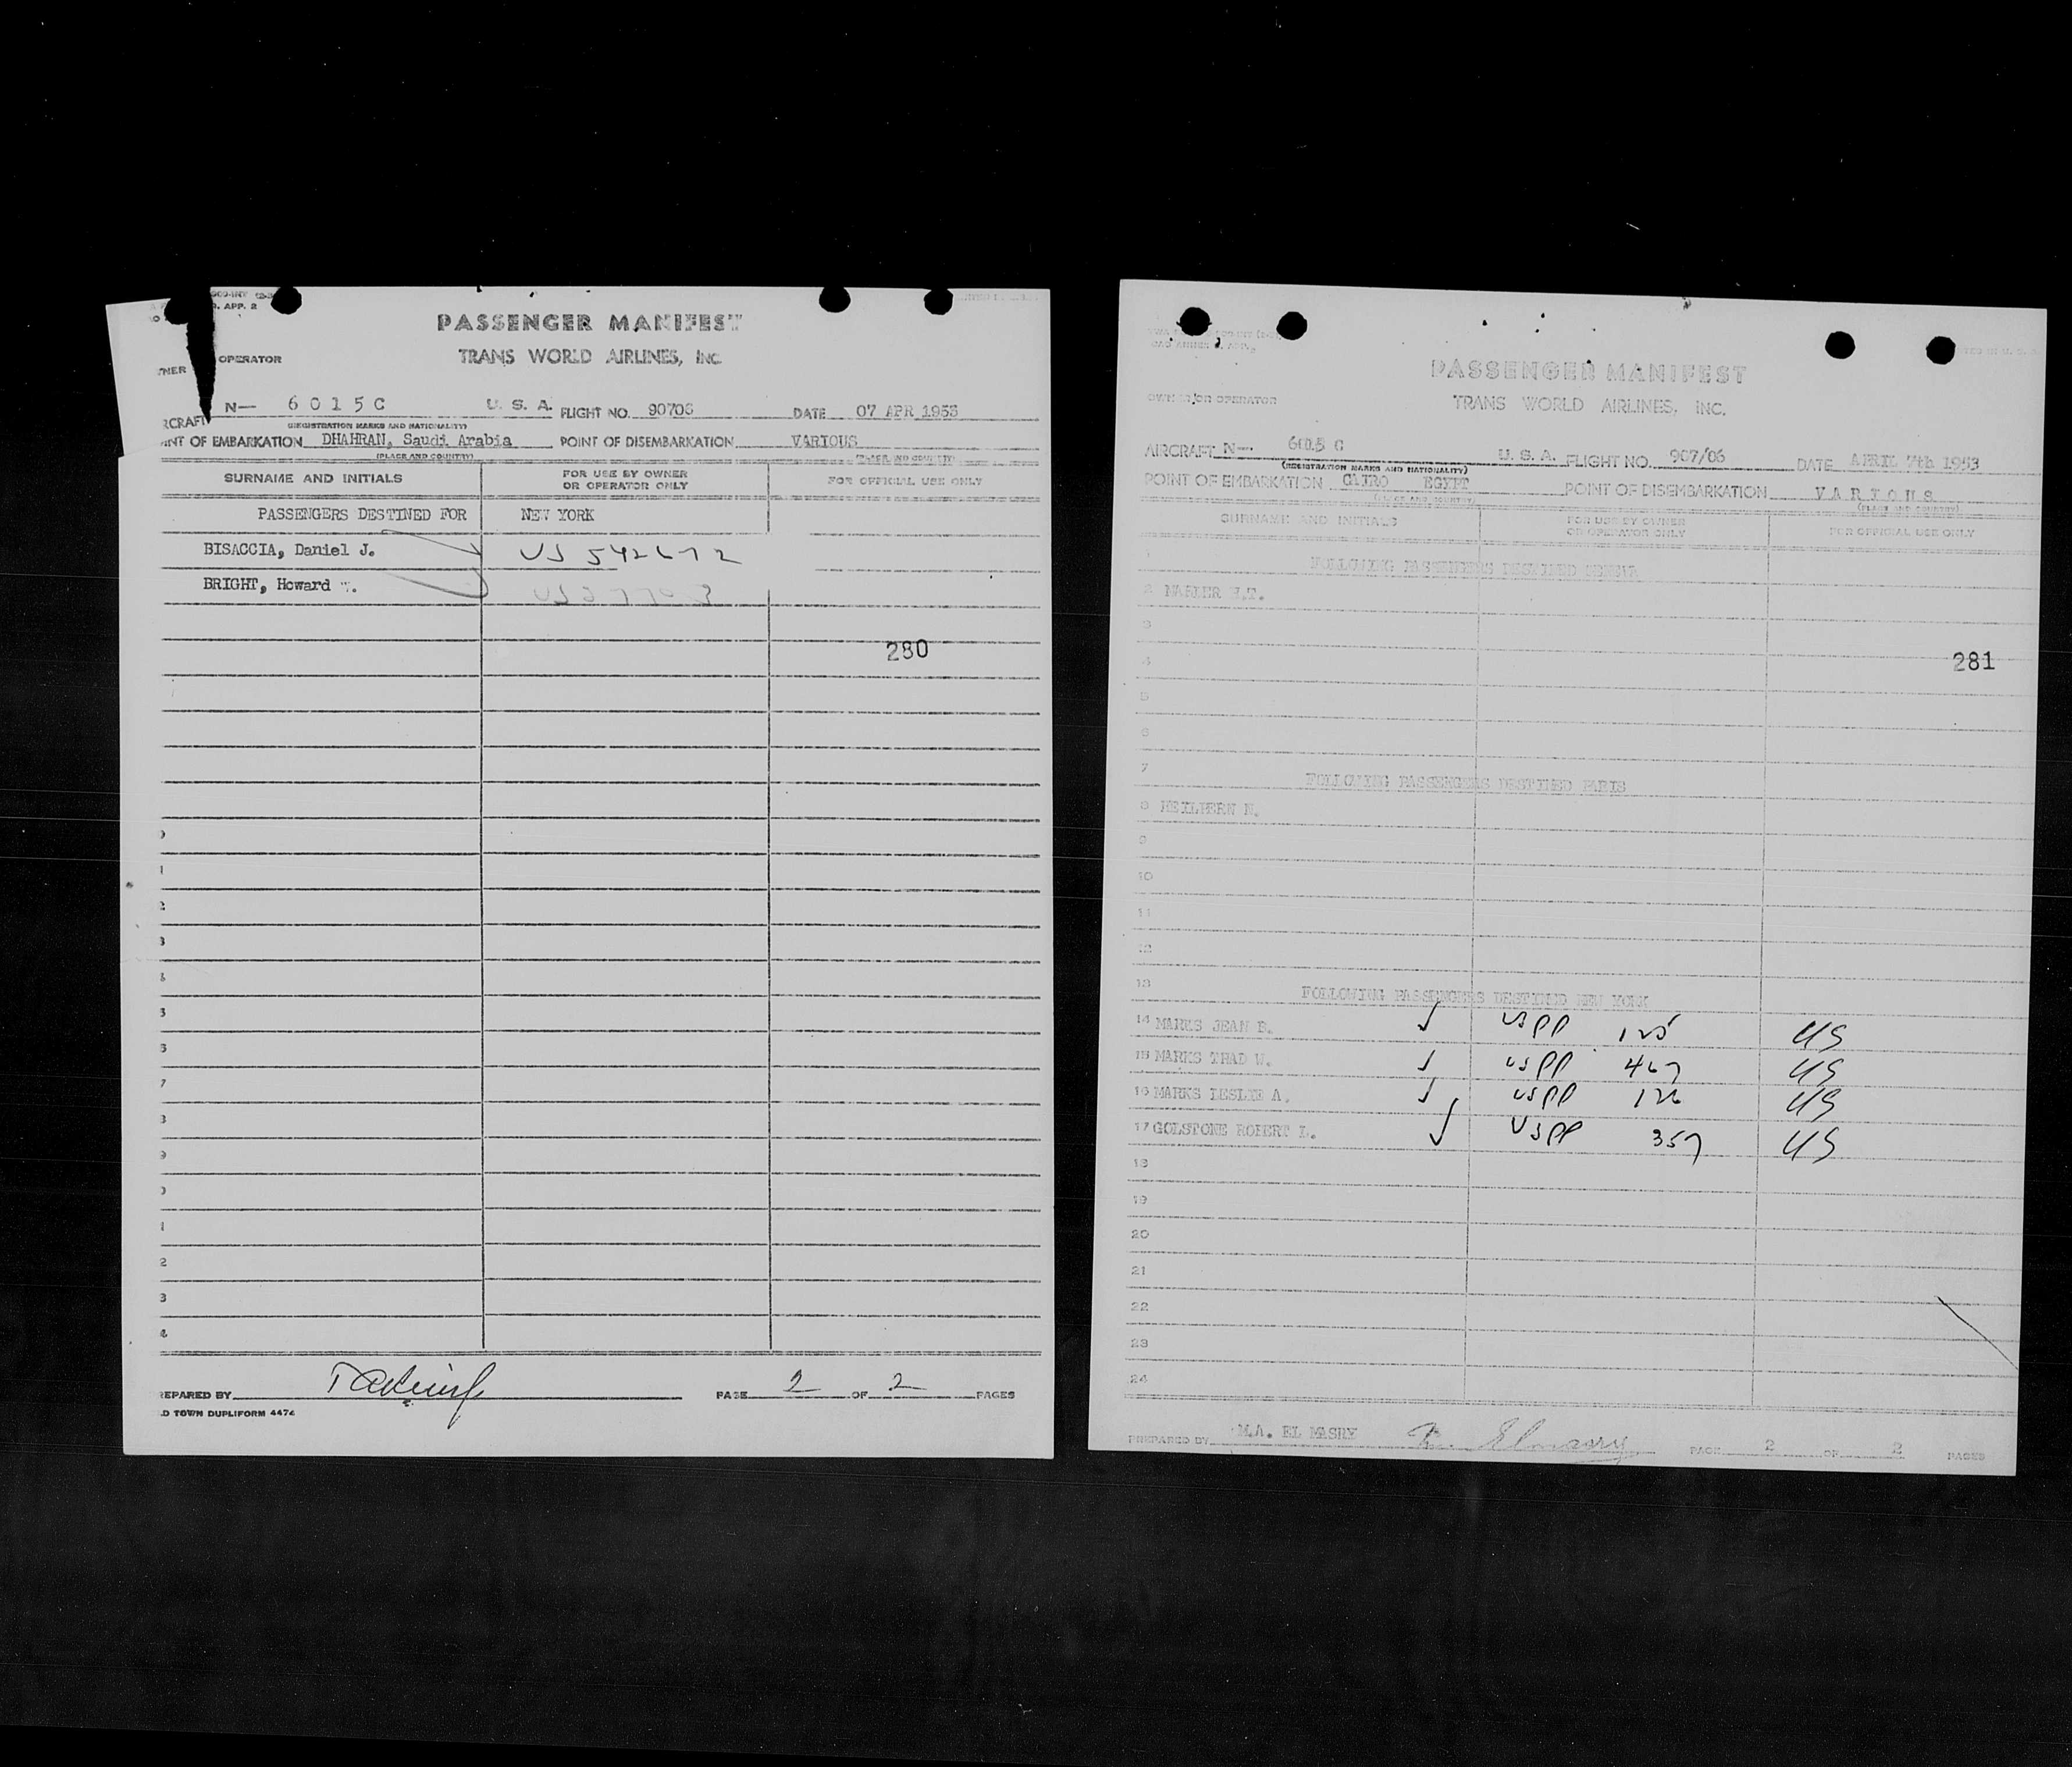 APP. 2
OPERATOR
PASSENGER MANIFEST
TRANS WORLD AIRLINES, INC.
N— 6015C U. S. A. FLIGHT NO. 90706 DATE 07 APR 1953
(REGISTRATION MARKS AND NATIONALITY)
POINT OF EMBARKATION DHAHRAN, Saudi Arabia POINT OF DISEMBARKATION VARIOUS
(PLACE AND COUNTRY) (PLACE AND COUNTRY)
SURNAME AND INITIALS FOR USE BY OWNER OR OPERATOR ONLY FOR OFFICIAL USE ONLY
PASSENGERS DESTINED FOR NEW YORK
BISACCIA, Daniel J. US 542672
BRIGHT, Howard
280
PREPARED BY PAGE 2 OF 2 PAGES
TOWN DUPLIFORM 4474
PASSENGER MANIFEST
OWNER OR OPERATOR
TRANS WORLD AIRLINES, INC.
AIRCRAFT N— 6015 C U. S. A. FLIGHT NO. 907/06 DATE APRIL 7th 1953
(REGISTRATION MARKS AND NATIONALITY)
POINT OF EMBARKATION CAIRO EGYPT POINT OF DISEMBARKATION VARIOUS
(PLACE AND COUNTRY) (PLACE AND COUNTRY)
SURNAME AND INITIALS FOR USE BY OWNER OR OPERATOR ONLY FOR OFFICIAL USE ONLY
1 FOLLOWING PASSENGERS DESTINED GENEVA
2
3
4 281
5
6
7 FOLLOWING PASSENGERS DESTINED PARIS
8 HEILPERN N.
9
10
11
12
13 FOLLOWING PASSENGERS DESTINED NEW YORK
14 MARKS JEAN B. uspp 125 US
15 MARKS THAD W. uspp 467 US
16 MARKS LESLIE A. uspp 126 US
17 GOLSTONE ROBERT L. uspp 357 US
18
19
20
21
22
23
24
PREPARED BY M.A. EL MASRY Elmasry PAGE 2 OF 2 PAGES